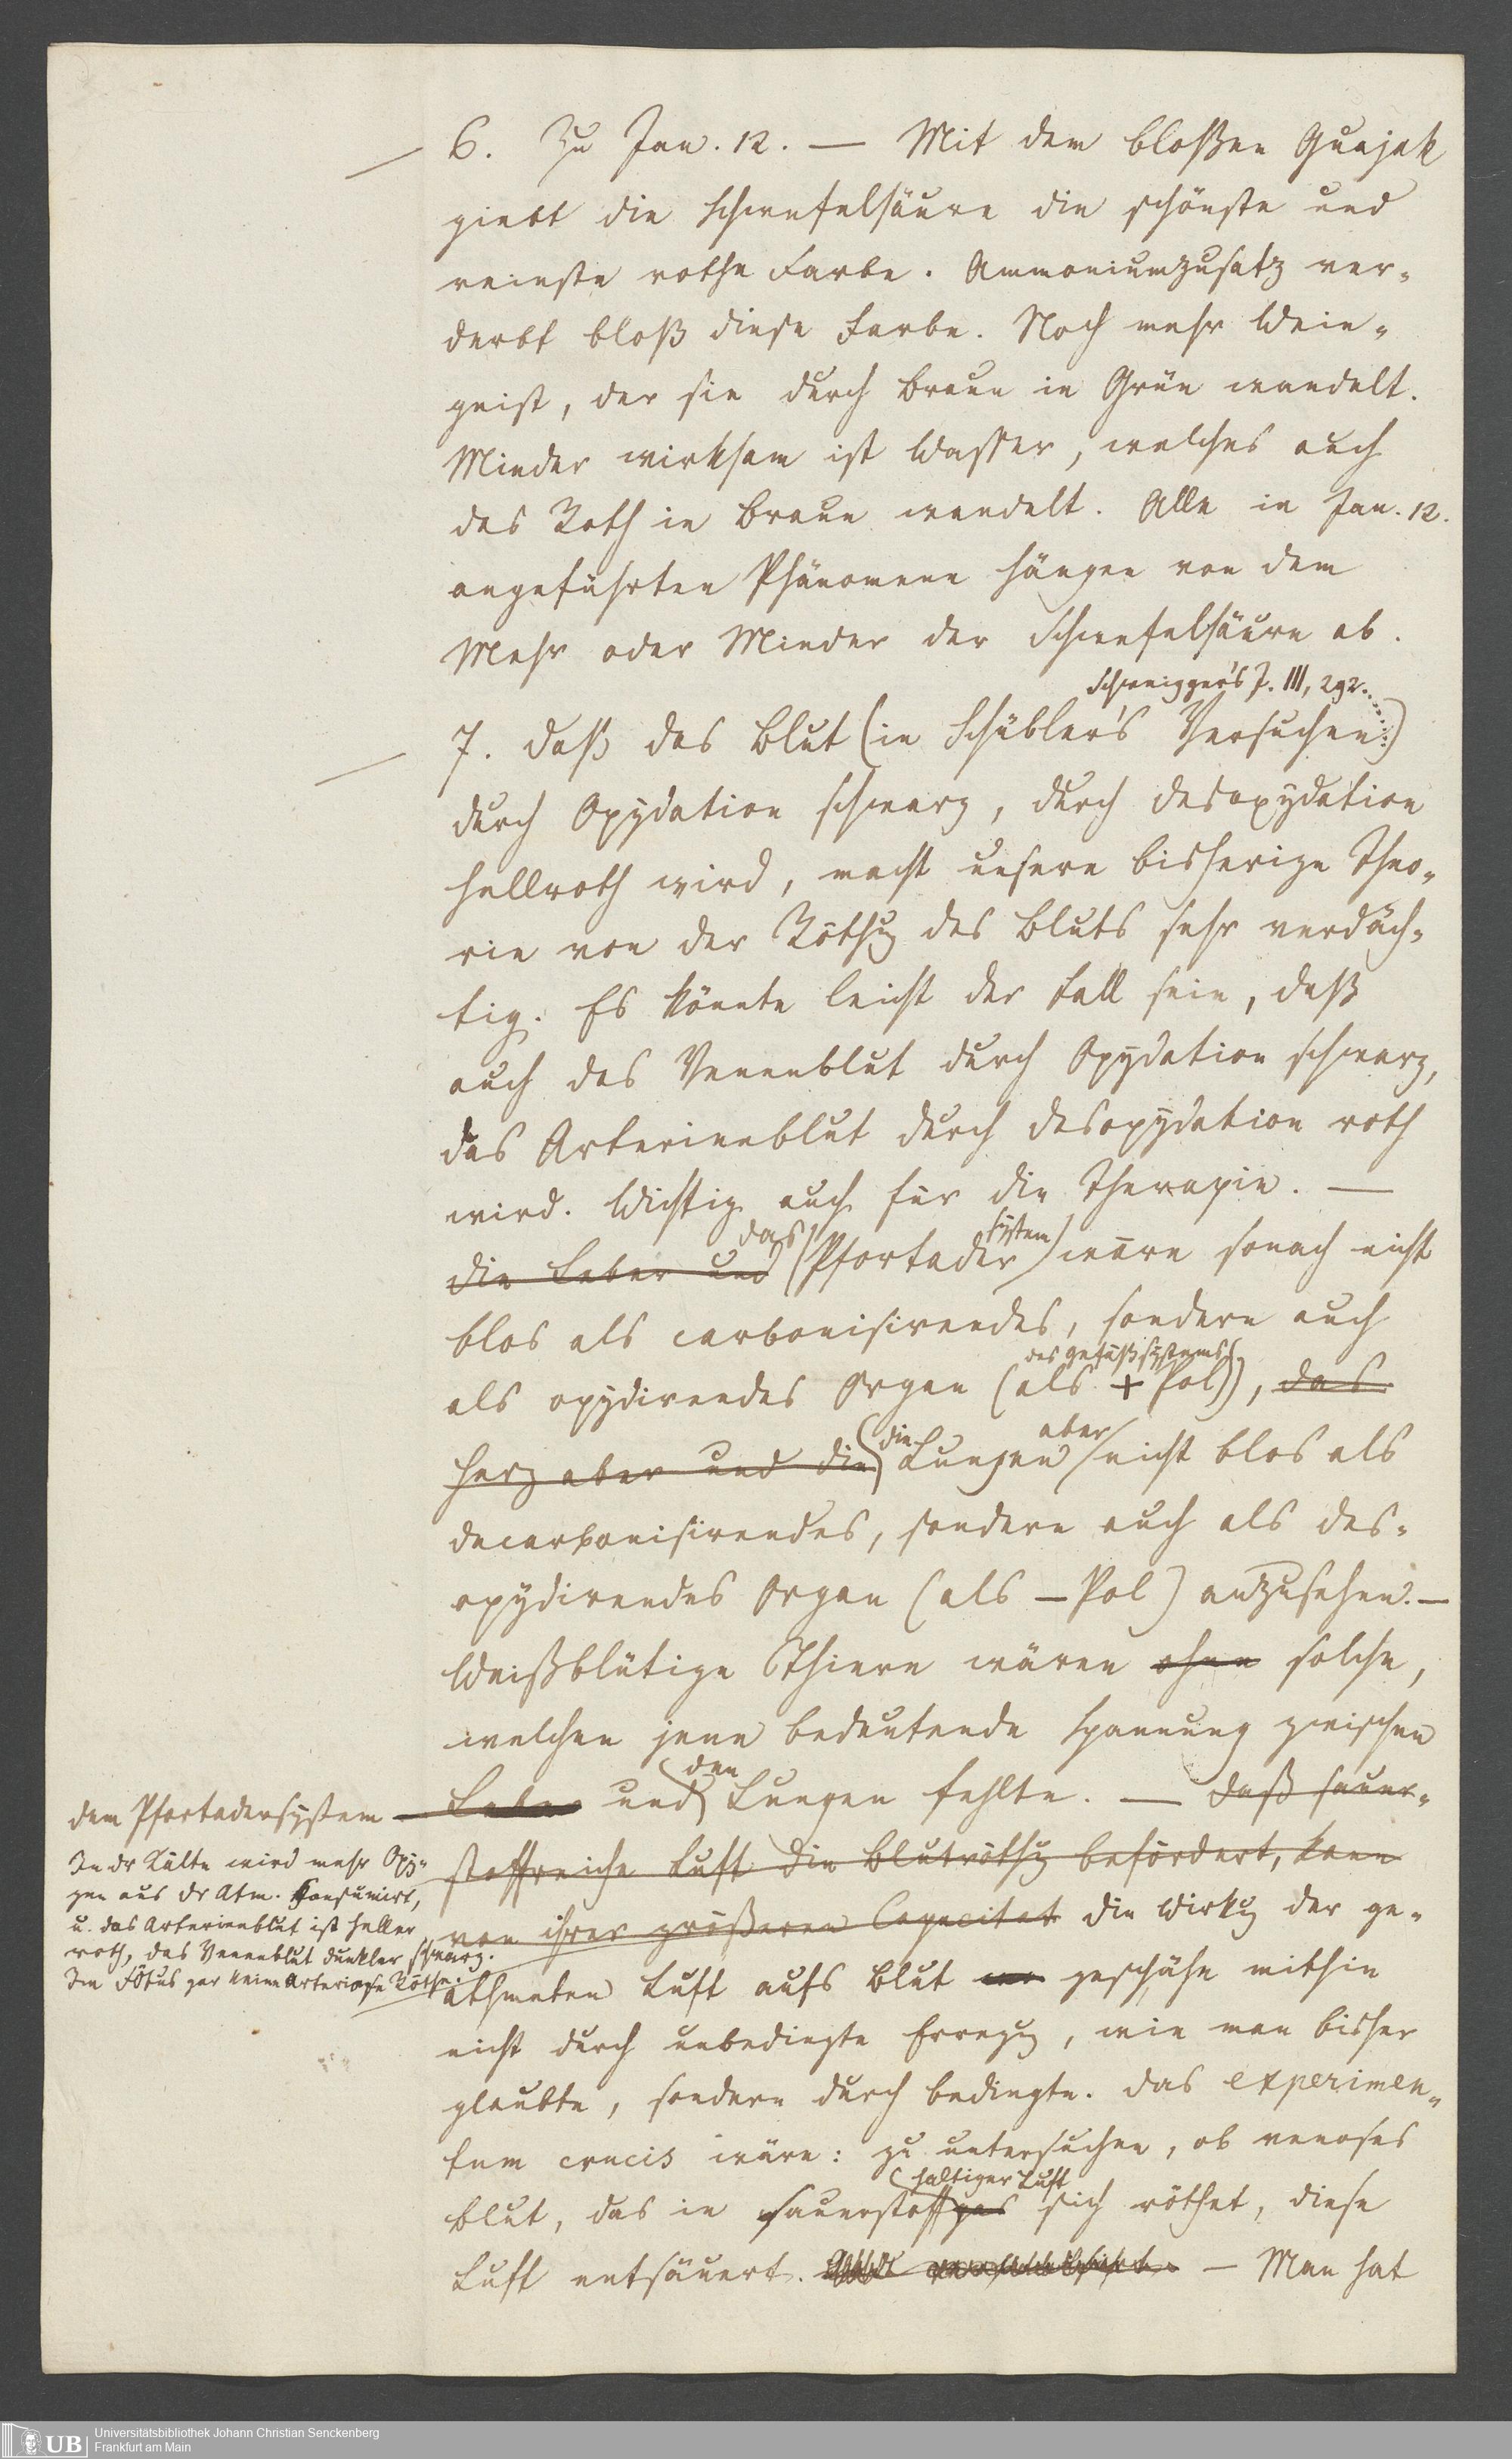 6. Zu Jan. 12. — Mit dem bloßen Guajak
giebt die Schwefelsäure die schönste und
reinste rothe Farbe. Ammoniumzusatz ver-
derbt bloß diese Farbe. Noch mehr Wein-
geist, der sie durch Braun in Grün wandelt.
Minder wirksam ist Wasser, welches auch
das Roth in Braun wandelt. Alle in Jan. 12.
angeführten Phänomene hängen von dem
Mehr oder Minder der Schwefelsäure ab.
Schweigger's J. III, 292.
7. Daß das Blut (in Schübler's Versuchen)
durch Oxydation schwarz, durch Desoxydation
hellroth wird, macht unsere bisherige Theo-
rie von der Röthg des Bluts sehr verdäch-
tig. Es könnte leicht der Fall sein, daß
auch das Venenblut durch Oxydation schwarz,
das Arterienblut durch Desoxydation roth
wird. Wichtig auch für die Therapie. —
das system
die Leber und Pfortader wäre sonach nicht
blos als carbonisirendes, sondern auch
des Gefäßsystems
als oxydirendes Organ (als + Pol), das
die aber
Herz aber und die Lungen nicht blos als
decarbonisirendes, sondern auch als des-
oxydirendes Organ (als — Pol) anzusehen. —
Weißblütige Thiere wären ohne solche,
welchen jene bedeutende Spannung zwischen
den
dem Pfortadersystem
Leber und Lungen fehlte. — Daß sauer-
stoffreiche Luft die Blutröthg befördert, kann
von ihrer größeren Capacitat die Wirkg der ge-
athmeten Luft aufs Blut geschähe mithin
nicht durch unbedingte Erregg, wie man bisher
glaubte, sondern durch bedingte. Das experimen-
tum crucis wäre: zu untersuchen, ob venoses
haltiger Luft
Blut, das in sauerstoffgas sich röthet, diese
Luft entsäuert. — Man hat
In dr Kälte wird mehr Oxy-
gen aus dr Atm. Konsumirt,
u. das Arterienblut ist heller
roth, das Venenblut dunkler schwarz.
Im Fötus gar keine Arteriose Röthe.
UB
Universitätsbibliothek Johann Christian Senckenberg
Frankfurt am Main